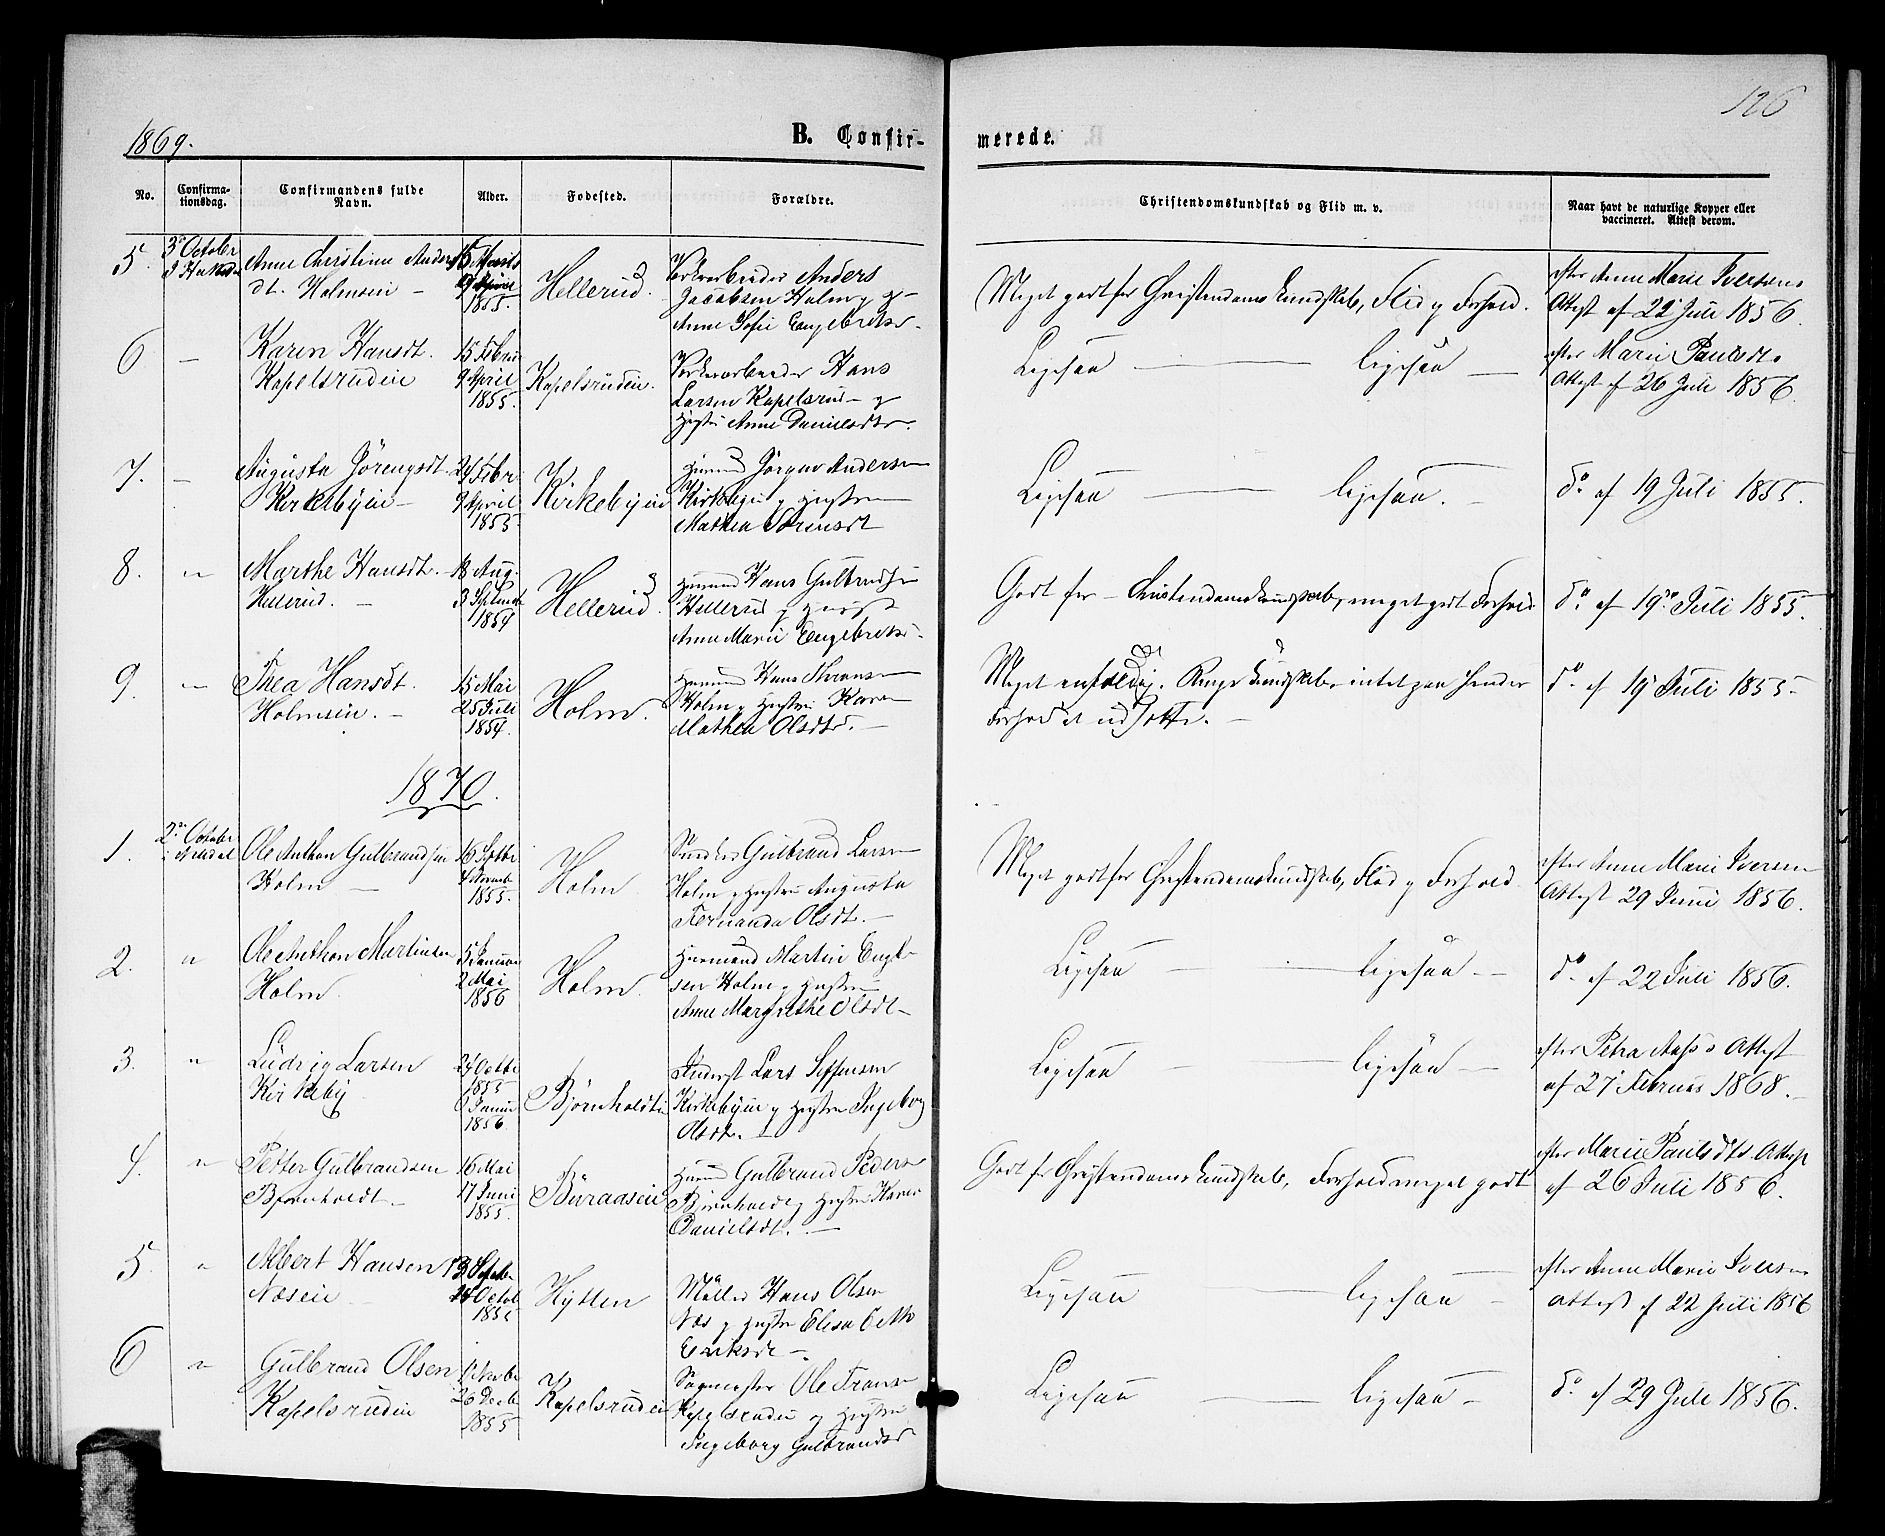 126
1869.
B. Confir-
merede.
No.
Confirma-
tionsdag.
Confirmandens fulde
Navn.
Alder.
Fodested.
Forældre.
Christendomskundskab og Flid m. v.
Naar havt de naturlige Kopper eller
vaccineret. Attest derom.
5.
3die October
Anne Christine Andersdt. Holmsein
15 Marts
9 April
1855.
Hellerud.
Anders
Jacobsen Holm og
Anne Sofie Engebretsd.
Meget godt for Christendomskundskab, Flid og Forhold.
efter Anne Marie Iversens
Attest af 22 Juli 1856.
6
Karen Hansdt.
Kapelsrudein
15 Febru
9 April
1855.
Kapelsrudein.
Hans
Larsen Kapelsrud og
Hustru Anne Danielsdtr.
Ligesaa — ligesaa —
efter Marie Paulsdts
Attest af 26 Juli 1856.
7.
Augusta Jörengsdt.
Kirkebyein
24 Febr.
9 April
1855.
Kirkebyein
Huusmd Jörgen Andersen
Kirkebyein og Hustru
Mathea Sörensdt
Ligesaa — ligesaa. —
do. af 19 Juli 1855.
8.
Marthe Hansdt.
Hellerud. —
18 Aug.
3 Septembr
1854
Hellerud.
Huusmd Hans Gulbrandsen
Hellerud og Hust
Anne Marie Engebretsd.
Godt for Christendomskundskab, meget godt Forhold
do. af 19de Juli 1855.
9.
Thea Hansdt.
Holmsein. —
15 Mai
25 Juli
1854.
Holm.
Huusmd Hans
Holm og Hustru Karen
Mathea Olsdtr. —
Meget enfoldig. Ringe Kundskab, intet paa hendes
Forhold at udsætte. —
do. af 19 Juli 1855.
1870.
1.
2den October
Ole Anthon Gulbrandsen
Holm —
16 Septbr
4 Novemb
1855.
Holm
Snedker Gulbrand Larsen
Holm og Hustru Augusta
Fernanda Olsdt. —
Meget godt for Christendomskundskab, Flid og Forhold.
efter Anne Marie Iversen
Attest 29 Juni 1856.
2.
Ole Anthon Martinsen
Holm.
5 Januar
2 Mai
1856
Holm.
Huusmand Martin Engbsen Holm og Hustru
Anne Margrethe Olsdt —
Ligesaa — ligesaa —
do. af 22 Juli 1856.
3.
Ludvig Larsen
Kirkeby
24 Octbr
1855
6 Januar
1856.
Björnholdt
Inderst Lars Steffensen
Kirkebyein og Hustru Ingeborg
Olsdt. —
Ligesaa — ligesaa —
efter Petra Attest
af 27 Februar 1868. —
4.
Petter Gulbrandsen
Bjørnholdt. —
16 Mai
17 Juni
1855.
Buraasein
Huusmd Gulbrand Peders
Björnholdt og Hustru Karen
Danielsdt. —
Godt for Christendomskundskab, Forhold meget godt
efter Marie Paulsdts Attest
af 26 Juli 1856.
5.
Albert Hansen
Næsein —
13 Septbr
14 Octob
1855
Hytten
Møller Hans Olsen
Næs og Hustru Elisabeth
Eriksdt —.
Ligesaa — ligesaa —
efter Anne Marie Iversen
Attest af 22 Juli 1856
6
Gulbrand Olsen
Kapelsrudein
26 Decbr
1855
Kapelsrudein
Sagmester Ole Fransen
Kapelsrudein og Hustru
Ingeborg Gulbrandsd
Ligesaa — ligesaa —
do. af 29 Juli 1856.